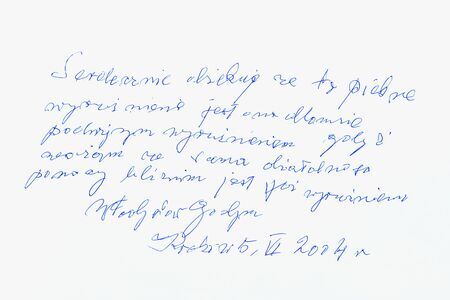 Serdecznie dziękuję za tę piękne
wyróżnienie jest ono dla mnie
podwójnym wyróżnieniem gdyż
uważam że sama działalność
pomocy bliźnim jest już wyróżnieniem
Władysław
5, VI 2004 r